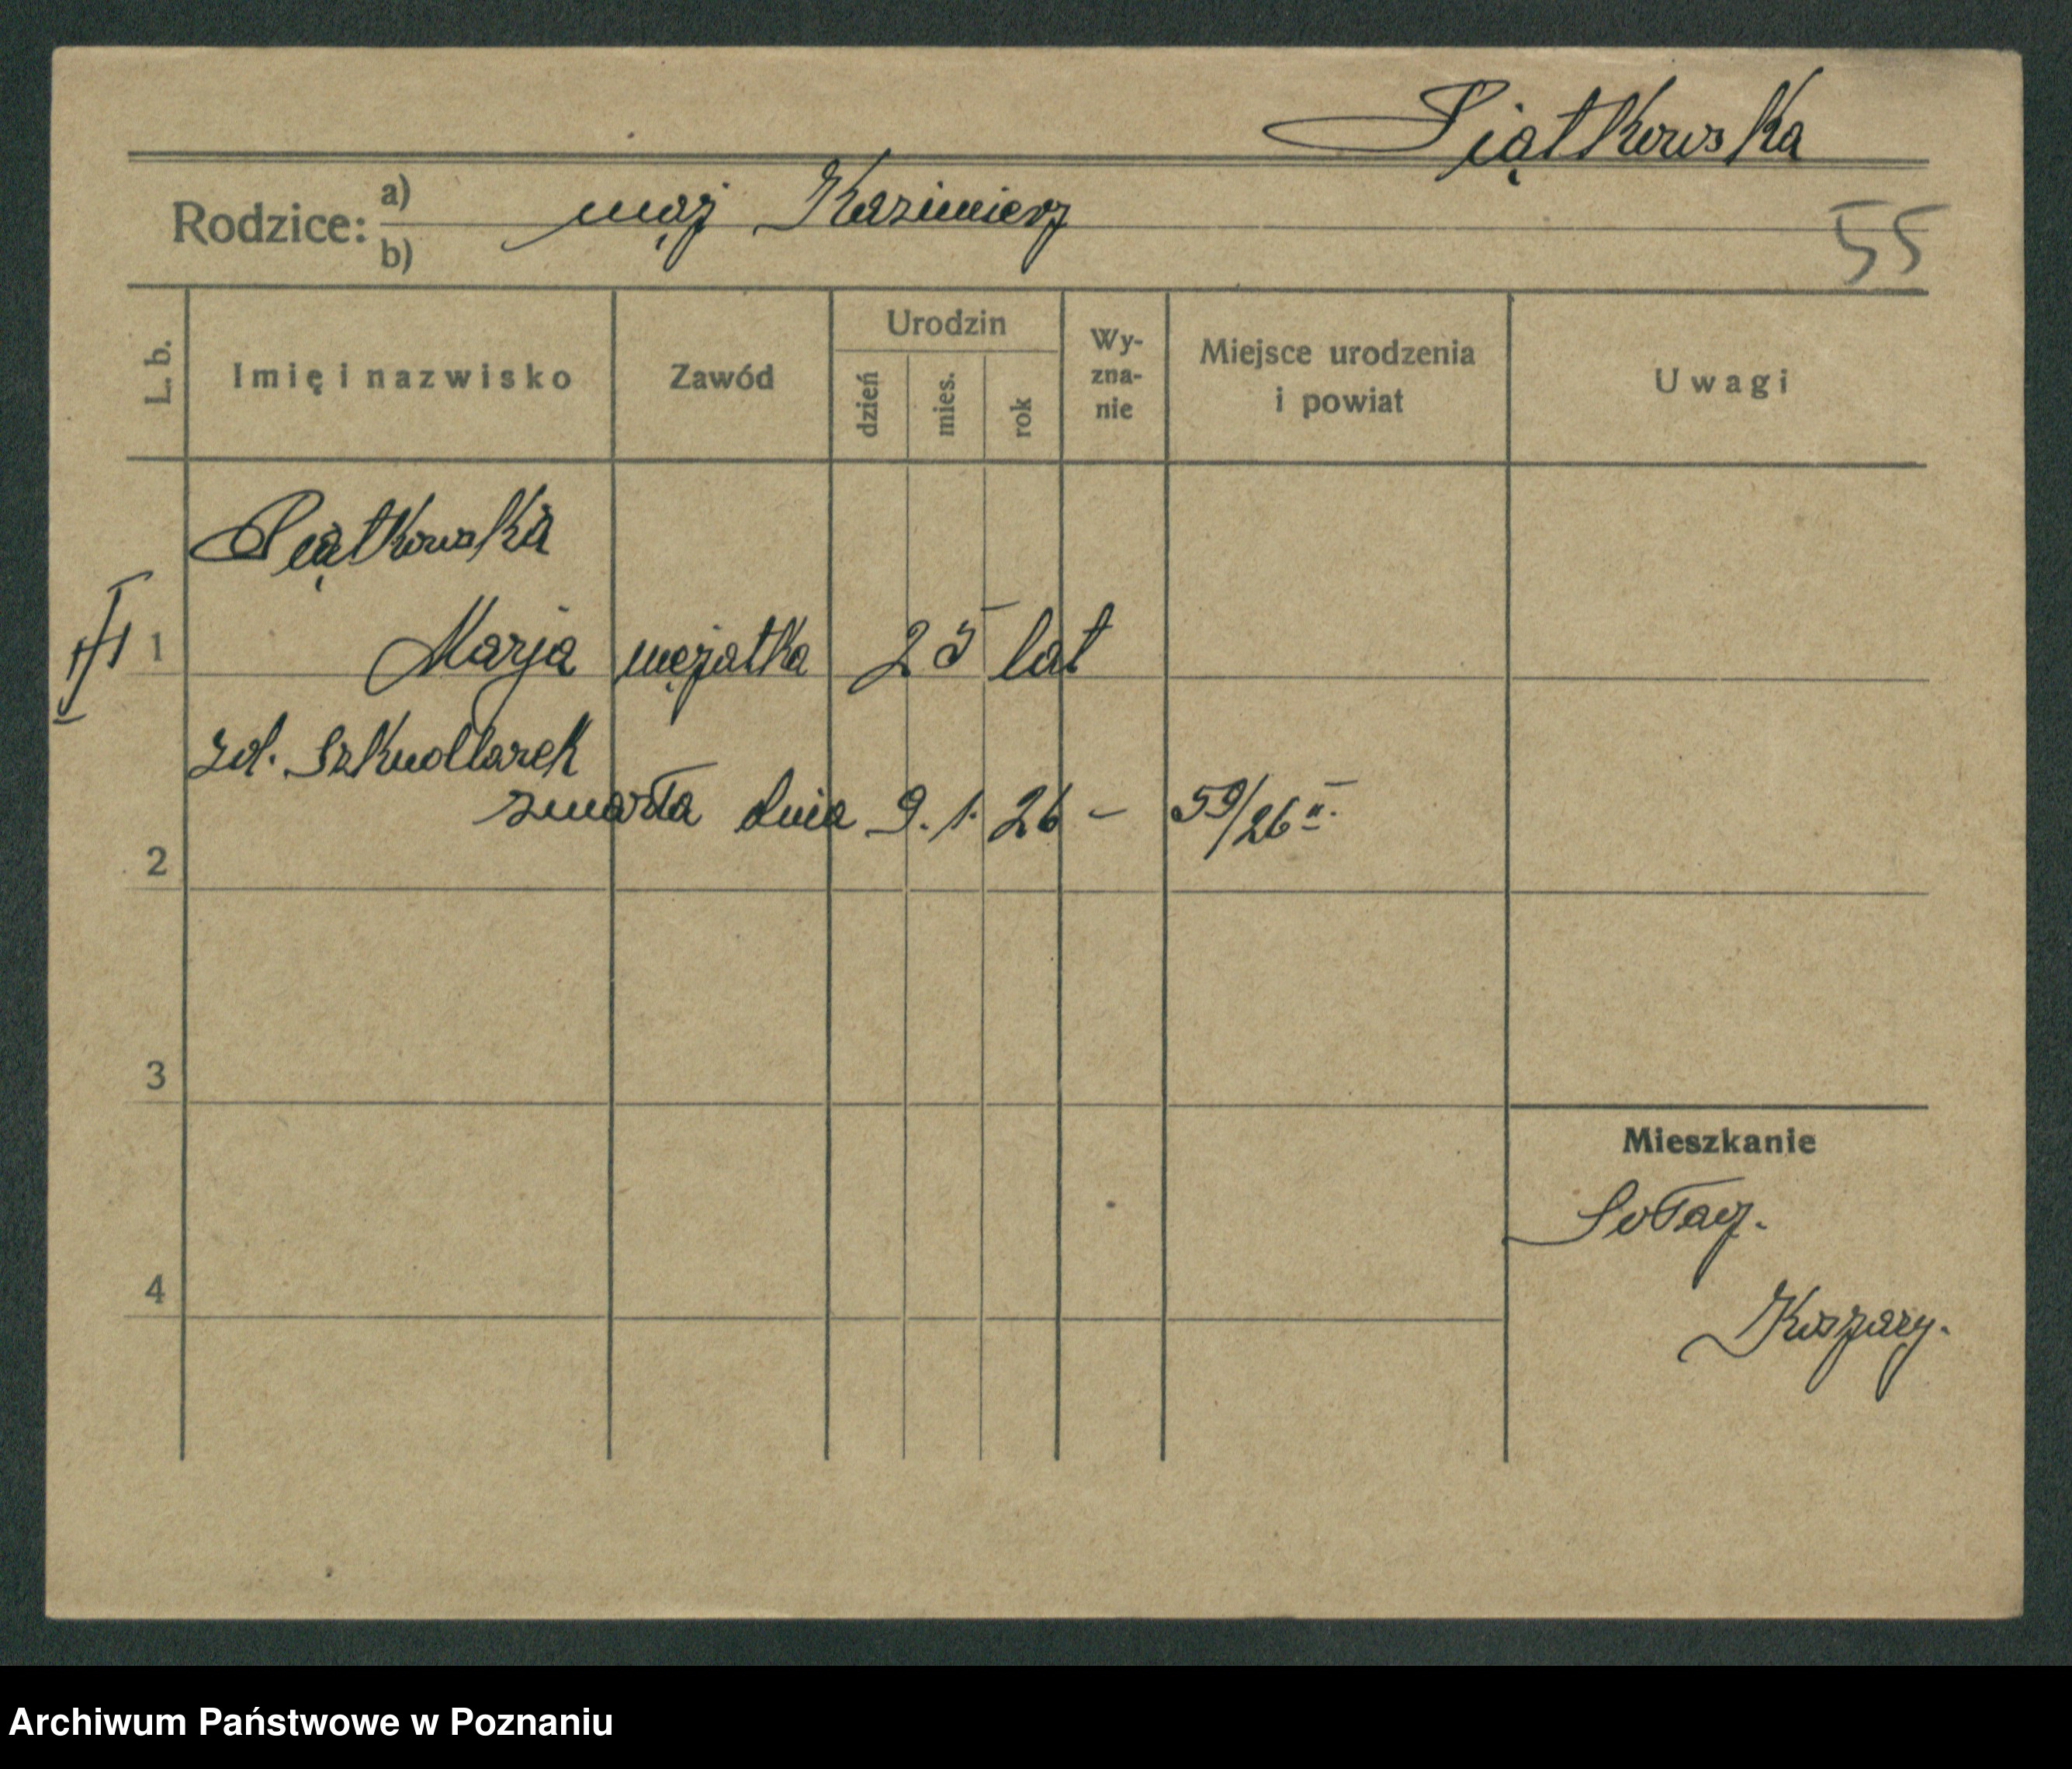 Piątkowska
Rodzice: a) b) mąż Kazimierz
55
L. b.
Imię i nazwisko
Zawód
Urodzin
dzień
mies.
rok
Wy-
zna-
nie
Miejsce urodzenia
i powiat
Uwagi
Piątkowska
1 Marja mężatka 25 lat
zd.
zmarła dnia 9. 1. 26 - 59/26 II.
2
3
Mieszkanie
Sołacz.
4
Koszary.
Archiwum Państwowe w Poznaniu